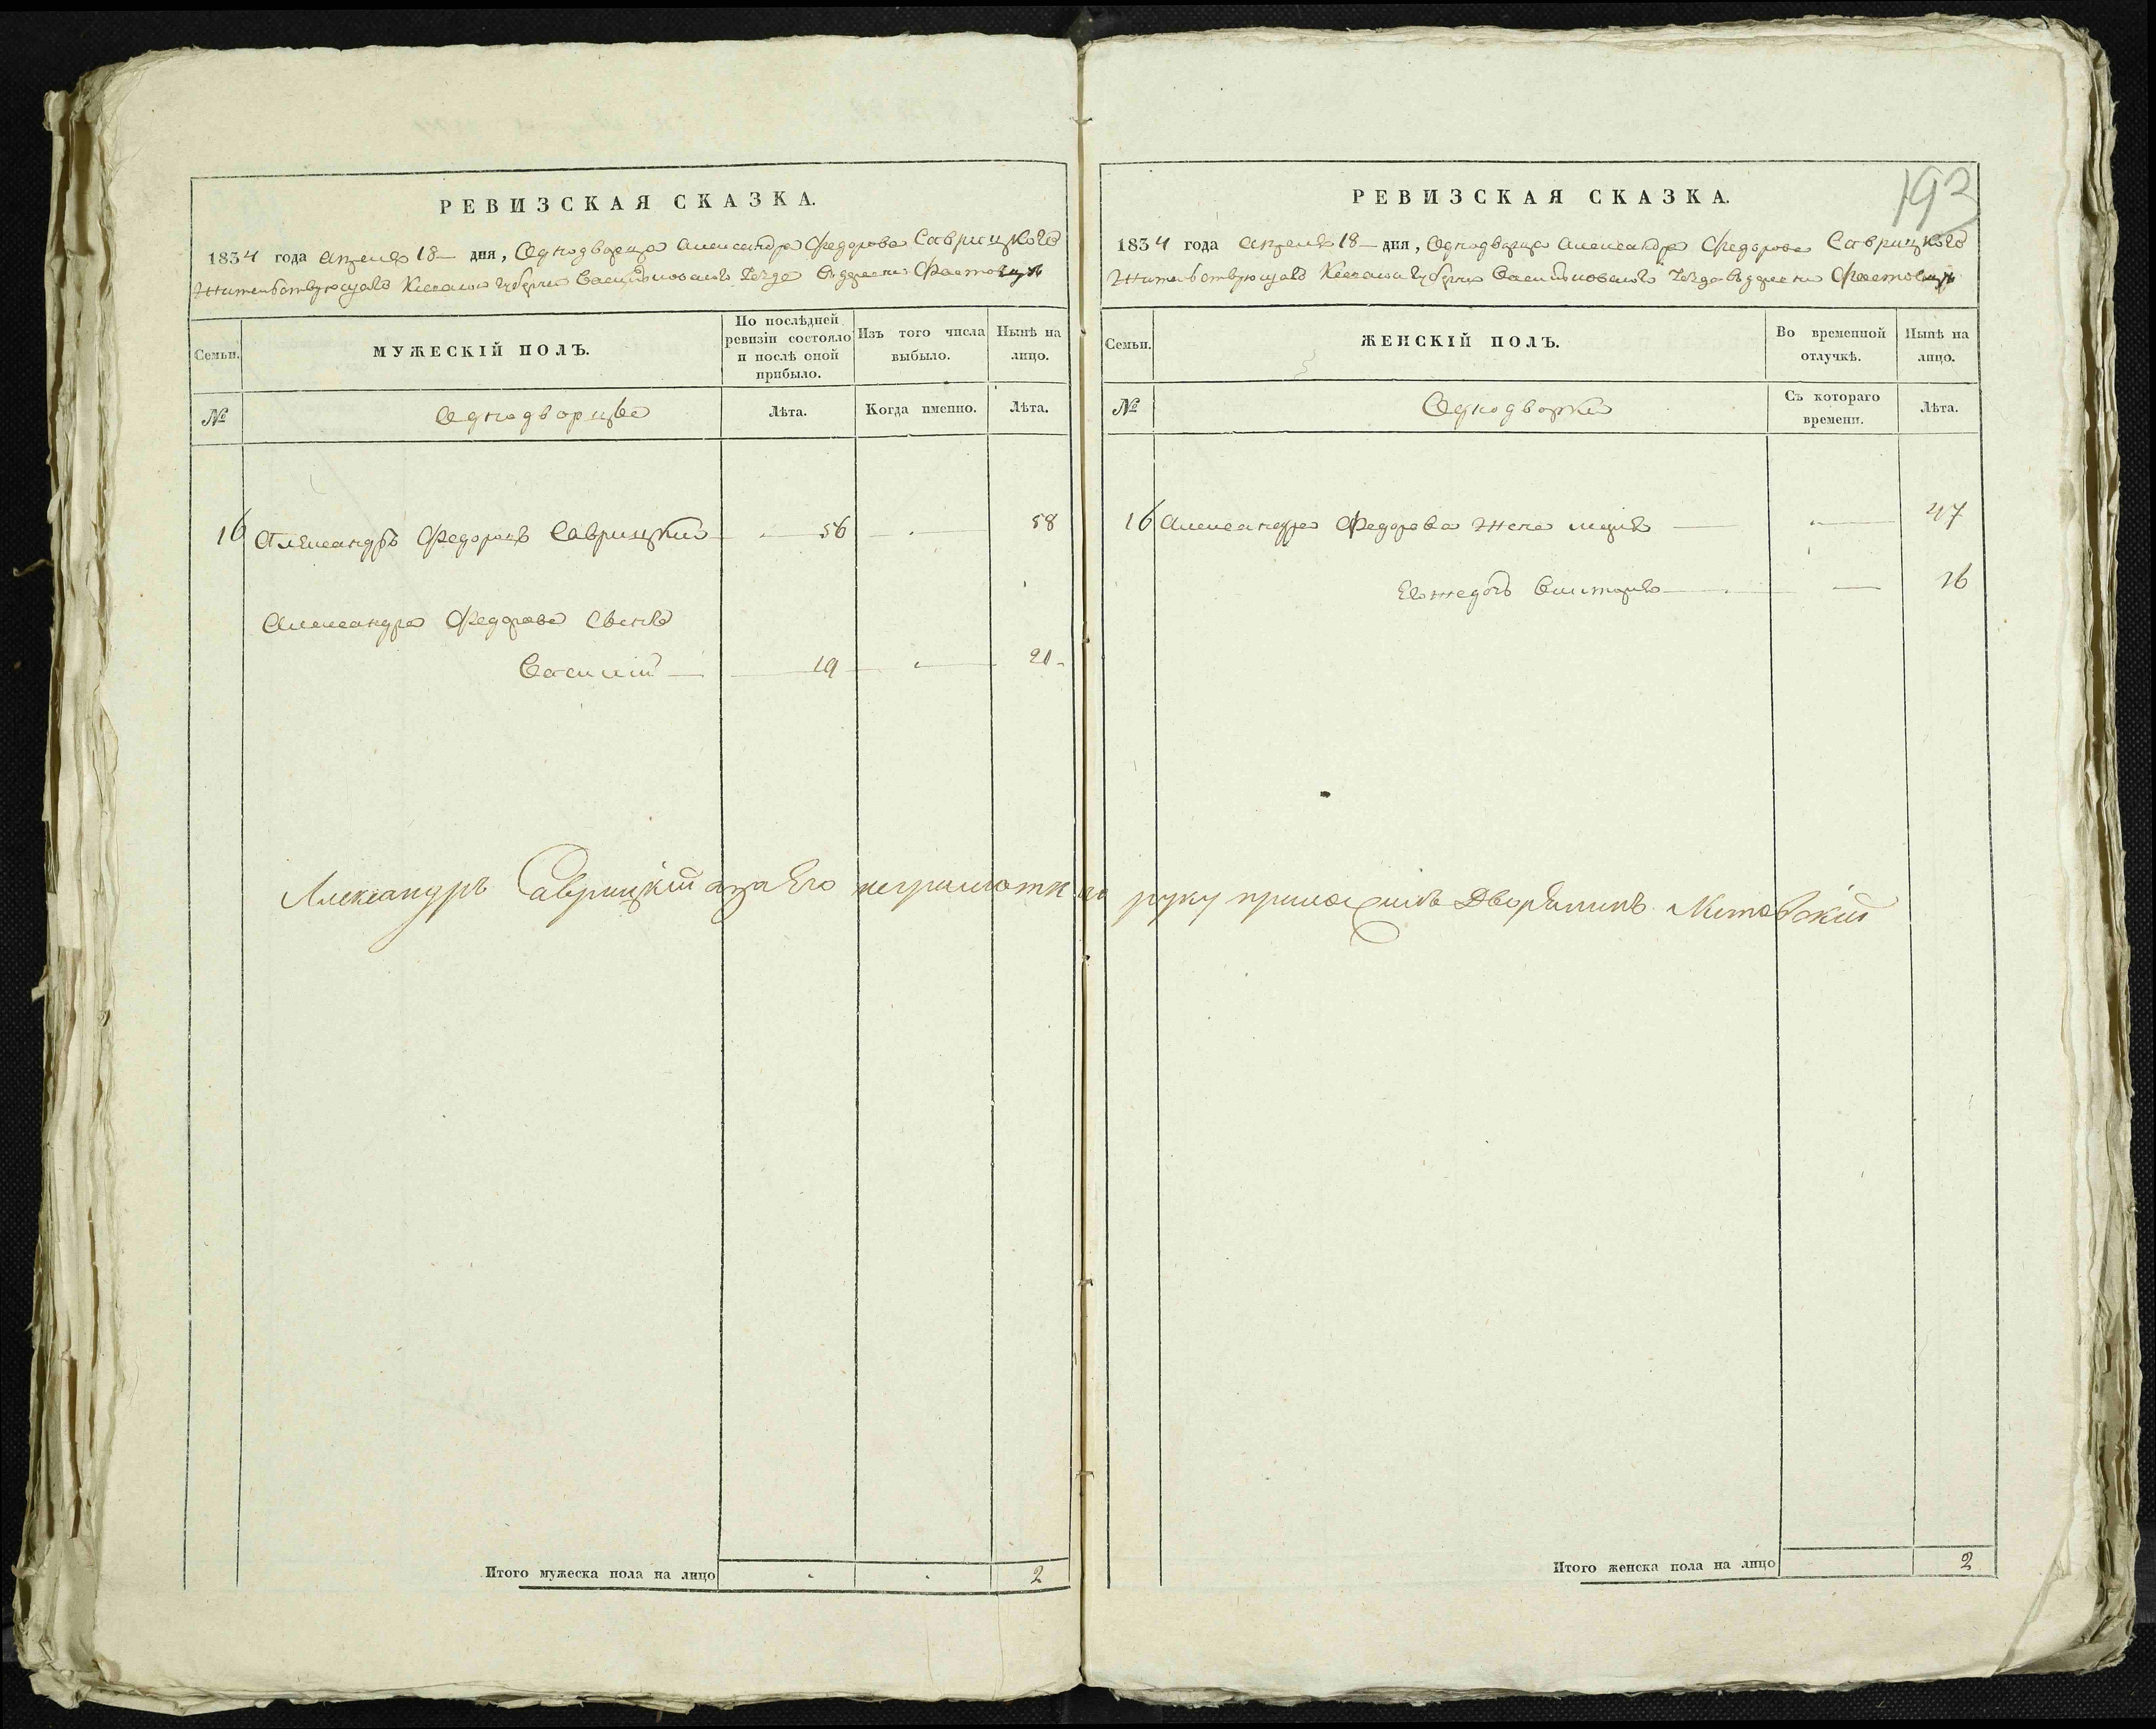 РЕВИЗСКАЯ СКАЗКА.
1834 года апреля 18 дня, Однодворца Александра Федорова Саврицкого
жительствующаго Киевской губернии Васильковского уезда в деревни
Семьи.
МУЖЕСКІЙ ПОЛЪ.
По послѣдней ревизіи состояло и послѣ оной прибыло.
Изъ того числа выбыло.
Нынѣ на лицо.
№
Однодворцы
Лѣта.
Когда именно.
Лѣта.
16 Александръ Федоровъ Саврицкий 56 58
Александра Федорова сынъ
Василий 19 21
Александръ Саврицкій а за Его неграмотн
Итого мужеска пола на лицо 2
193
РЕВИЗСКАЯ СКАЗКА.
1834 года апреля 18 дня, Однодворца Александра Федорова Саврицкого
жительствующаго Киевской губернии Васильковского уезда в деревни
Семьи.
ЖЕНСКІЙ ПОЛЪ.
Во временной отлучкѣ.
Нынѣ на лицо.
№
Однодворки
Съ котораго времени.
Лѣта.
16 Александра Федорова жена 47
Ея же дочь 16
руку приложилъ Дворянинъ
Итого женска пола на лицо 2